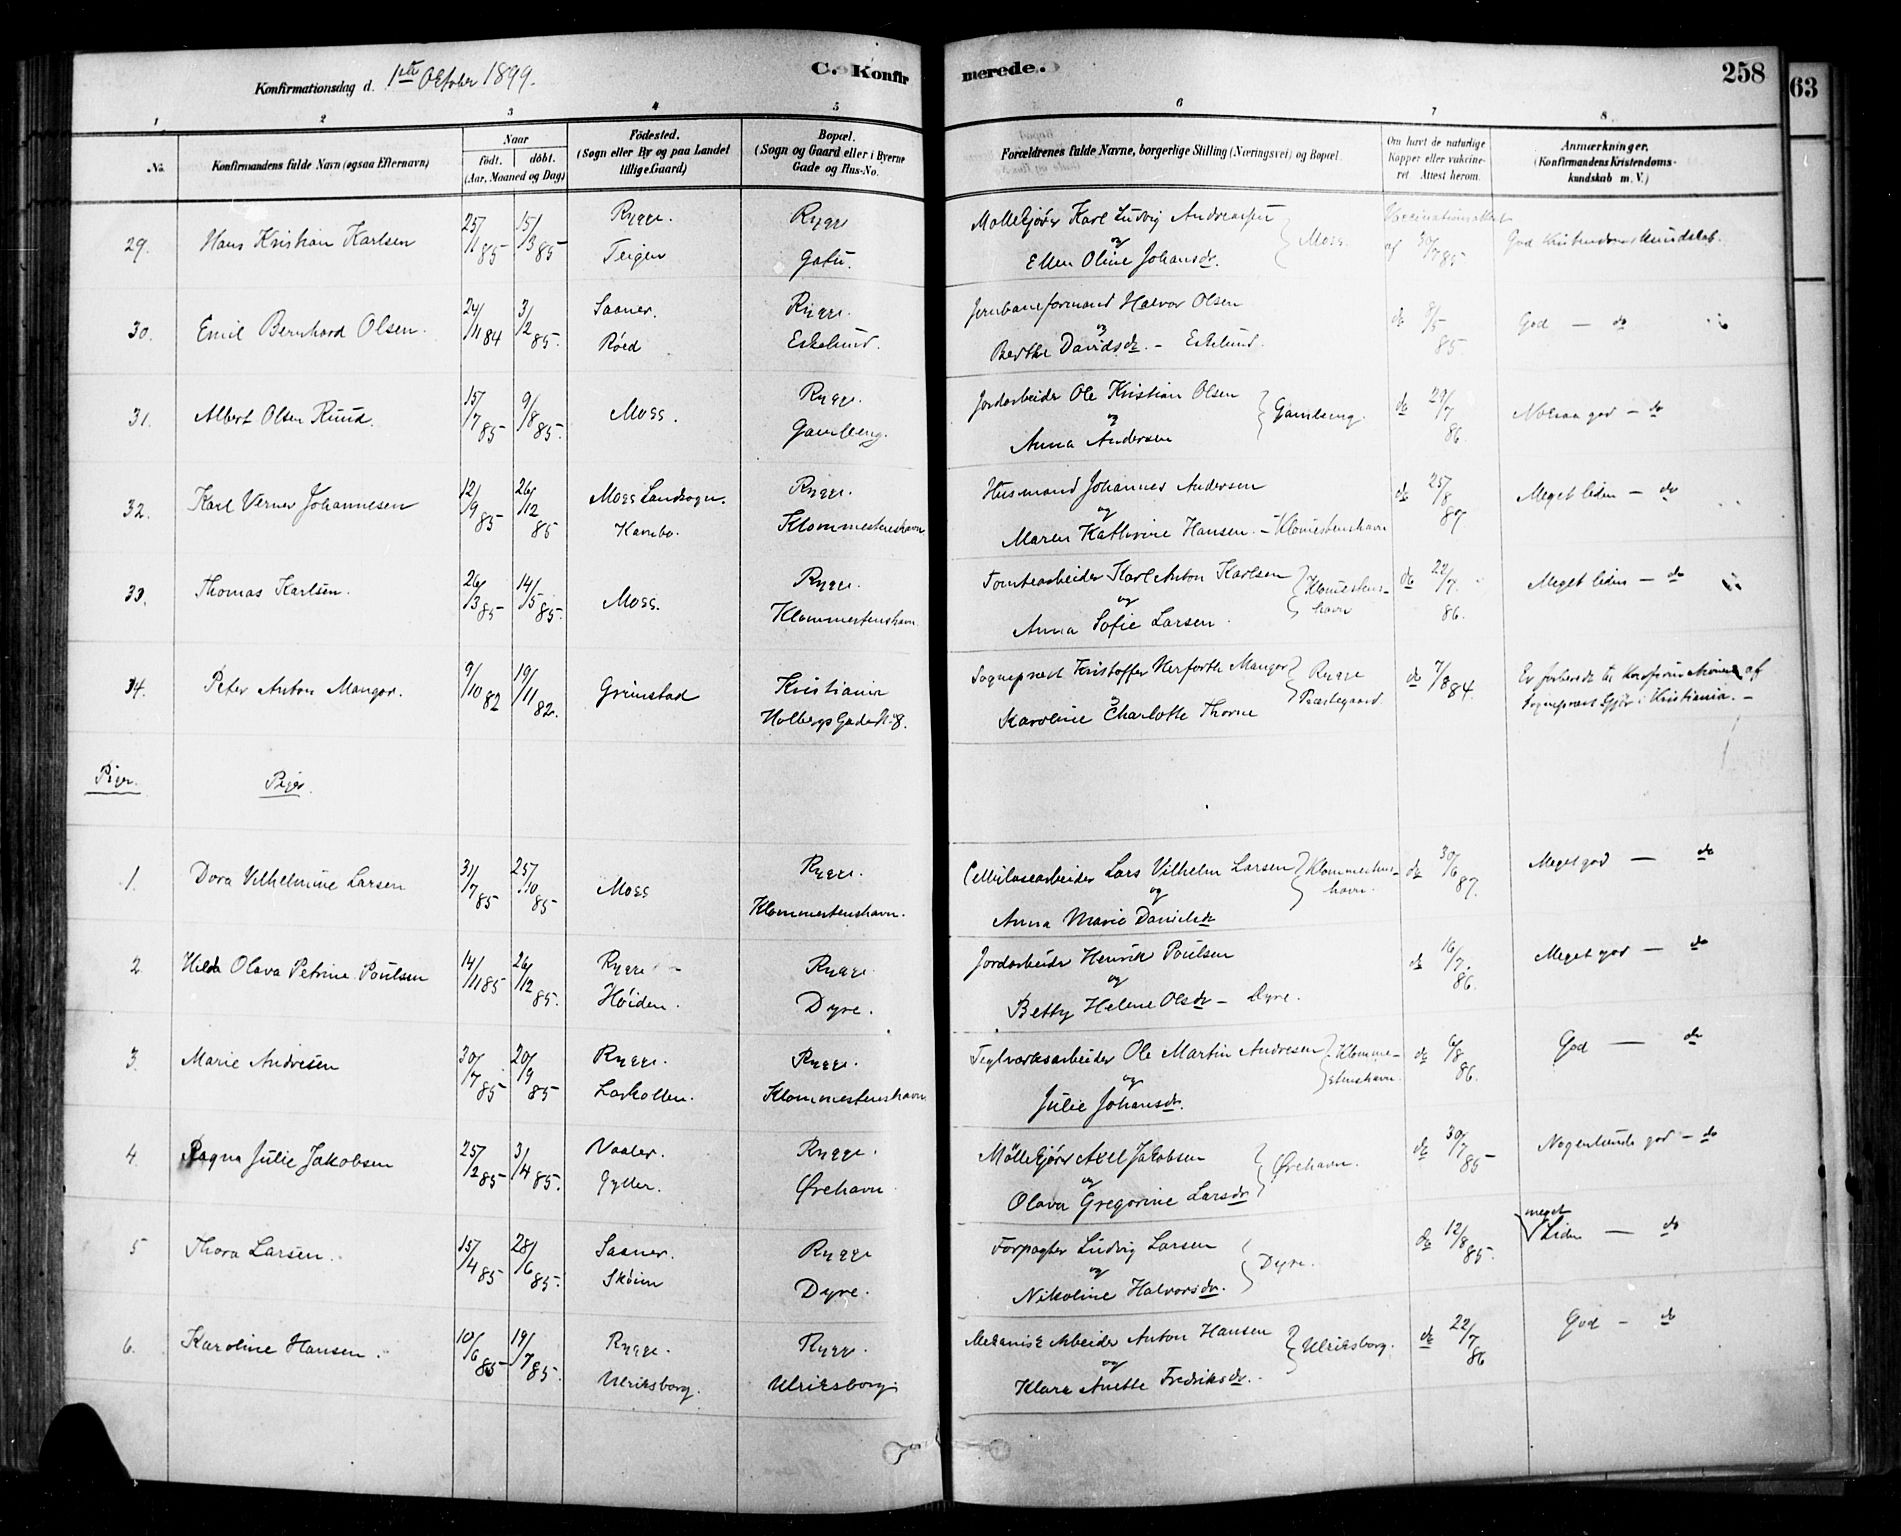 Konfirmationsdag d. 1ste October 1899.
C. Konfirmerede.
258
63
1 2 3 4 5 6 7 8
No.
Konfirmandens fulde Navn (ogsaa Efternavn)
Naar
födt. döbt.
(Aar, Maaned og Dag)
Födested.
(Sogn eller By og paa Landet
tillige Gaard)
Bopæl.
(Sogn og Gaard eller i Byerne
Gade og Hus-No.
Forældrenes fulde Navne, borgerlige Stilling (Næringsvei) og Bopæl.
Om havt de naturlige
Kopper eller vakcine-
ret Attest herom.
Anmærkninger.
(Konfirmandens Kristendoms-
kundskab m. V.)
29. Hans Kristian Karlsen 25/1 85 15/3 85 Rygge. Teigen Rygge Gatu. Møllekjører Karl Ludvig Andreassen og Ellen Oline Johansdr. } Moss. Vaccinationsattest af 30/7 85 God Kristendomskundskab.
30. Emil Bernhard Olsen. 24/11 84 3/2 85. Saaner. Röed Rygge. Eskelund. Jernbaneformand Halvor Olsen og Berthe Davidsdr. - Eskelund. do 8/5 85 God — do
31. Albert Olsen Ruud. 15/7 85 9/8 85. Moss. Rygge. Gamleeng. Jordarbeider Ole Kristian Olsen og Anna Andersen } Gamleeng. do 29/7 86. Nokaa god — do
32. Karl Verner Johannesen 12/9 85 26/12 85 Moss Landsogn. Kambo. Rygge. Klommestenshavn Husmand Johannes Andersen og Maren Kathrine Hansen. - Klomestenshavn do 25/8 87 Meget liden — do
33. Thomas Karlsen. 26/3 85 14/5 85. Moss. Rygge. Klommestenshavn Tomtearbeider Karl Anton Karlsen og Anna Sofie Larsen. } Klomestens-havn do 22/7. 86. Meget liden — do
34. Peter Anton Mangor. 9/10 82 19/11 82. Grimstad Kristiania Holbergs Gade No 8. Sogneprest Kristoffer Herforth Mangor og Karoline Charlotte Thorne } Rygge Præstegaard. do 7/8 84. Er forberedt til Konfirmationen af Sogneprest Gjör i Kristiania. -
Piger. Piger.
1. Dora Vilhelmine Larsen 31/7 85 25/10 85 Moss Rygge. Klommestenshavn. Cellulosearbeider Lars Vilhelm Larsen og Anna Marie Danielsdr } Klommestens-havn. do 30/6 87. Meget god — do
2. Hilda Olava Petrine Poulsen 14/11 85 26/12 85. Rygge Höiden. Rygge. Dyre. Jordarbeider Henrik Poulsen og Betty Helene Olsdr - Dyre. do 16/7. 86. Meget god — do
3. Marie Andresen 30/7 85 20/9 85 Rygge. Larkollen. Rygge. Klommestenshavn Teglværksarbeider Ole Martin Andresen og Julie Johansdr. } Klomme-stenshavn. do 6/8 86. God — do
4. Ragna Julie Jakobsen 25/2 85 3/4 85. Vaaler. Gyller. Rygge. Ørehavn. Möllekjører Axel Jakobsen og Olava Gregorine Larsdr } Ørehavn. do 30/7 85 Nogenlunde god — do
5 Thora Larsen. 15/4 85 28/6 85. Saaner. Sköien Rygge Dyre. Forpagter Ludvig Larsen og Nikoline Halvorsdr. } Dyre. do 12/8 85. meget Liden — do
6. Karoline Hansen. 10/6 85 19/7 85. Rygge. Ulriksborg. Rygge. Ulriksborg Mekanisk Arbeider Anton Hansen og Klara Anette Fredriksdr. } Ulriksborg. do 22/7 86 God — do